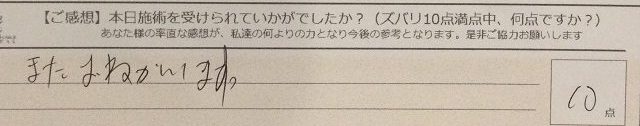 【ご感想】本日施術を受けられていかがでしたか？（ズバリ10点満点中、何点ですか？）
あなた様の率直な感想が、私達の何よりの力となり今後の参考となります。是非ご協力お願いします
またおねがいします。
10点